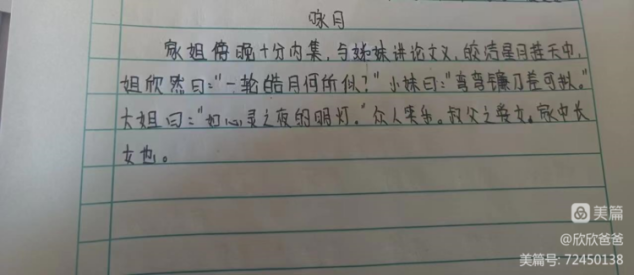 咏月
家姐傍晚十分内集，与姊妹讲论文义，皎洁星月挂天中，
姐欣然曰：“一轮皓月何所似？”小妹曰：“弯弯镰刀差可拟。”
大姐曰：“如心灵之夜的明灯。”众人笑乐。叔父之爱女。家中长
女也。
美篇
@欣欣爸爸
美篇号: 72450138